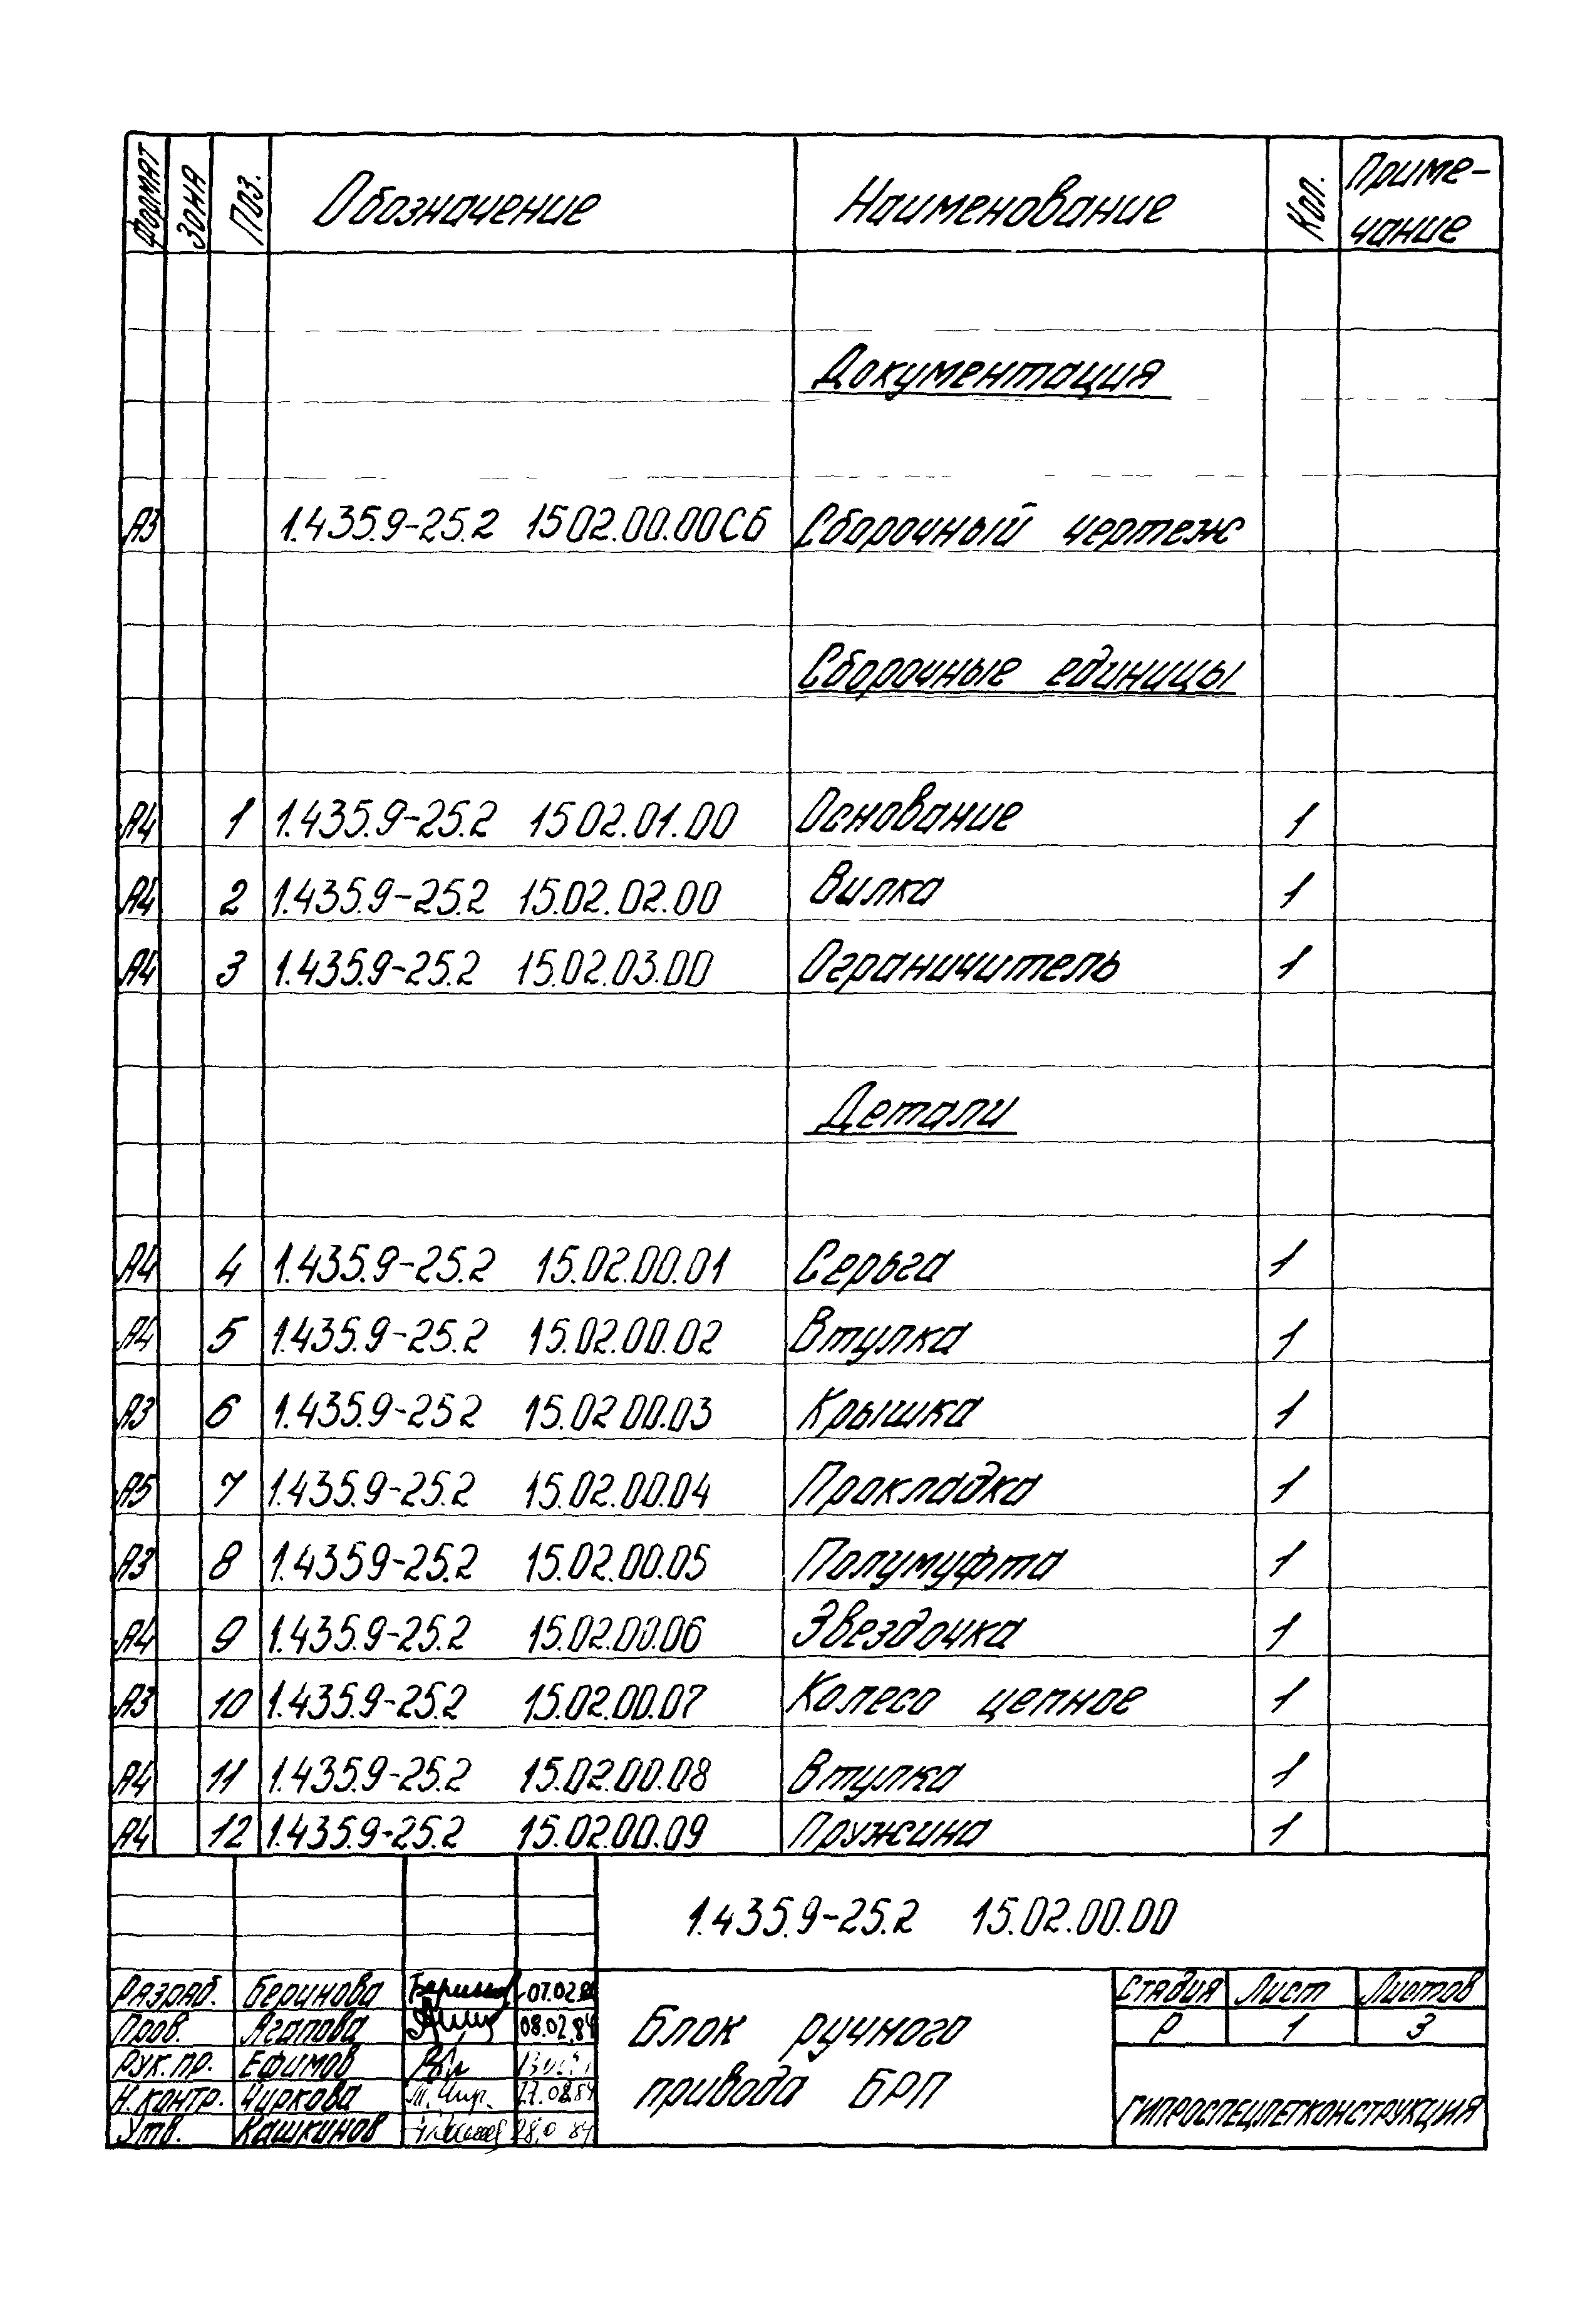 Формат Зона Поз. Обозначение Наименование Кол. Приме-
чание
Документация
А3 1.435.9-25.2 1502.00.00СБ Сборочный чертеж
Сборочные единицы
А4 1 1.435.9-25.2 1502.01.00 Основание 1
А4 2 1.435.9-25.2 15.02.02.00 Вилка 1
А4 3 1.435.9-25.2 15.02.03.00 Ограничитель 1
Детали
А4 4 1.435.9-25.2 15.02.00.01 Серьга 1
А4 5 1.435.9-25.2 15.02.00.02 Втулка 1
А3 6 1.435.9-25 2 15.02 00.03 Крышка 1
А5 7 1.435.9-25.2 15.02.00.04 Прокладка 1
А3 8 1.4359-25.2 15.02.00.05 Полумуфта 1
А4 9 1.435.9-25.2 15.02.00.06 Звездочка 1
А3 10 1.435.9-25.2 15.02.00.07 Колесо цепное 1
А4 11 1.435.9-25.2 15.02.00.08 Втулка 1
А4 12 1.435.9-25.2 15.02.00.09 Пружина 1
1.435.9-25.2 15.02.00.00
Разраб. Беринова 07.02.84
Пров. Агапова 08.02.84
Рук.пр. Ефимов
Н.контр. Чиркова 27.08.84
Утв. Кашкинов
Блок ручного
привода БРП
Стадия Лист Листов
Р 1 3
ГИПРОСПЕЦЛЕГКОНСТРУКЦИЯ